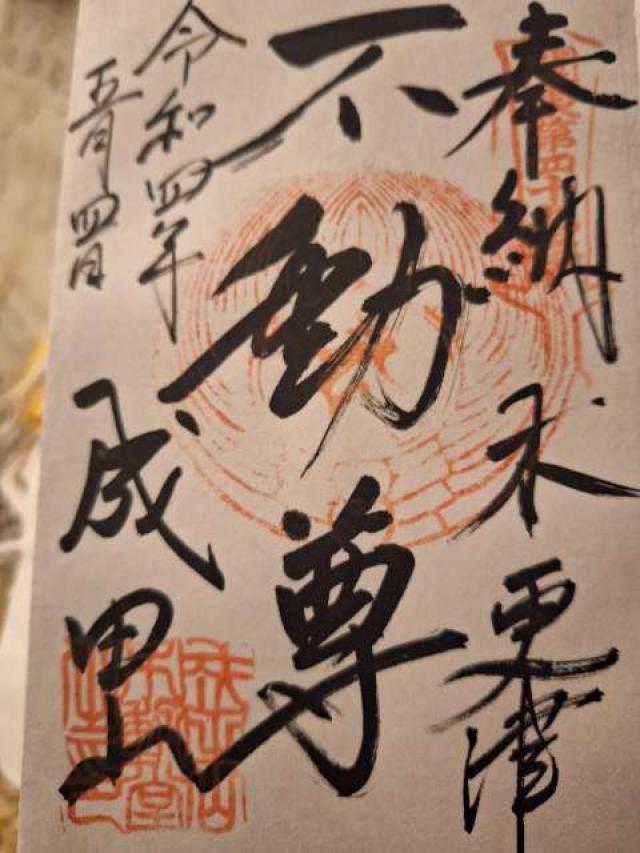 奉納 木更津
不動尊
令和四年
五月四日
成田山